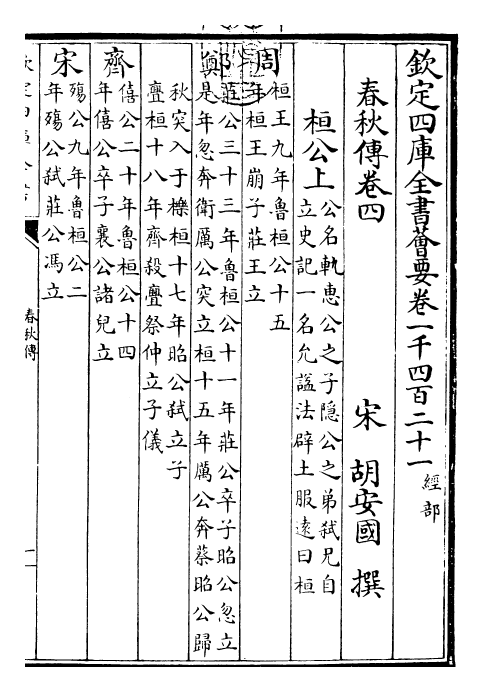 欽定四庫全書薈要卷一千四百二十一 經部
春秋傳卷四 宋 胡安國 撰
桓公上
公名軌惠公之子隱公之弟弑兄自
立史記一名允諡法辟土服遠曰桓
周
桓王九年魯桓公十五
年桓王崩子莊王立
鄭
莊公三十三年魯桓公十一年莊公卒子昭公忽立
是年忽奔衛厲公突立桓十五年厲公奔蔡昭公歸
秋突入于櫟桓十七年昭公弑立子
亹桓十八年齊殺亹祭仲立子儀
齊
僖公二十年魯桓公十四
年僖公卒子襄公諸兒立
宋
殤公九年魯桓公二
年殤公弑莊公馮立
春秋傳
一